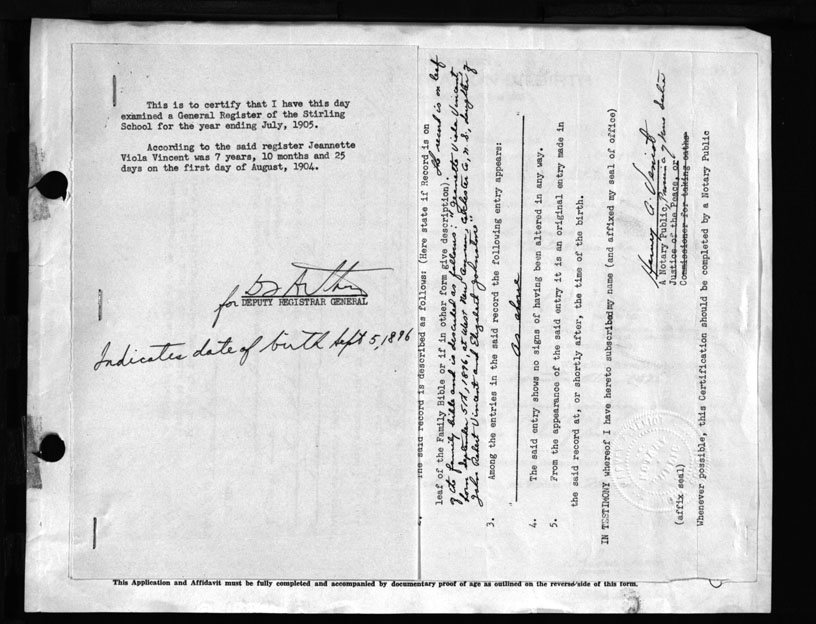 This is to certify that I have this day
examined a General Register of the Stirling
School for the year ending July, 1905.
According to the said register Jeannette
Viola Vincent was 7 years, 10 months and 25
days on the first day of August, 1904.
for DEPUTY REGISTRAR GENERAL
Indicates date of birth Sept 5, 1896
The said record is described as follows: (Here state if Record is on
leaf of the Family Bible or if in other form give description). record is on leaf
of the family bible and is described as follows: "Jeannette Viola Vincent,
born September 5th, 1896, at West New Annan, Colchester Co, N.S., daughter of
John Robert Vincent and Elizabeth Johnstone"
3. Among the entries in the said record the following entry appears:
As above
4. The said entry shows no signs of having been altered in any way.
5. From the appearance of the said entry it is an original entry made in
the said record at, or shortly after, the time of the birth.
IN TESTIMONY whereof I have hereto subscribed my name (and affixed my seal of office)
A Notary Public, Province of Nova Scotia
Justice of the Peace, or
Commissioner for taking oaths
(affix seal)
Whenever possible, this Certification should be completed by a Notary Public
This Application and Affidavit must be fully completed and accompanied by documentary proof of age as outlined on the reverse side of this form.